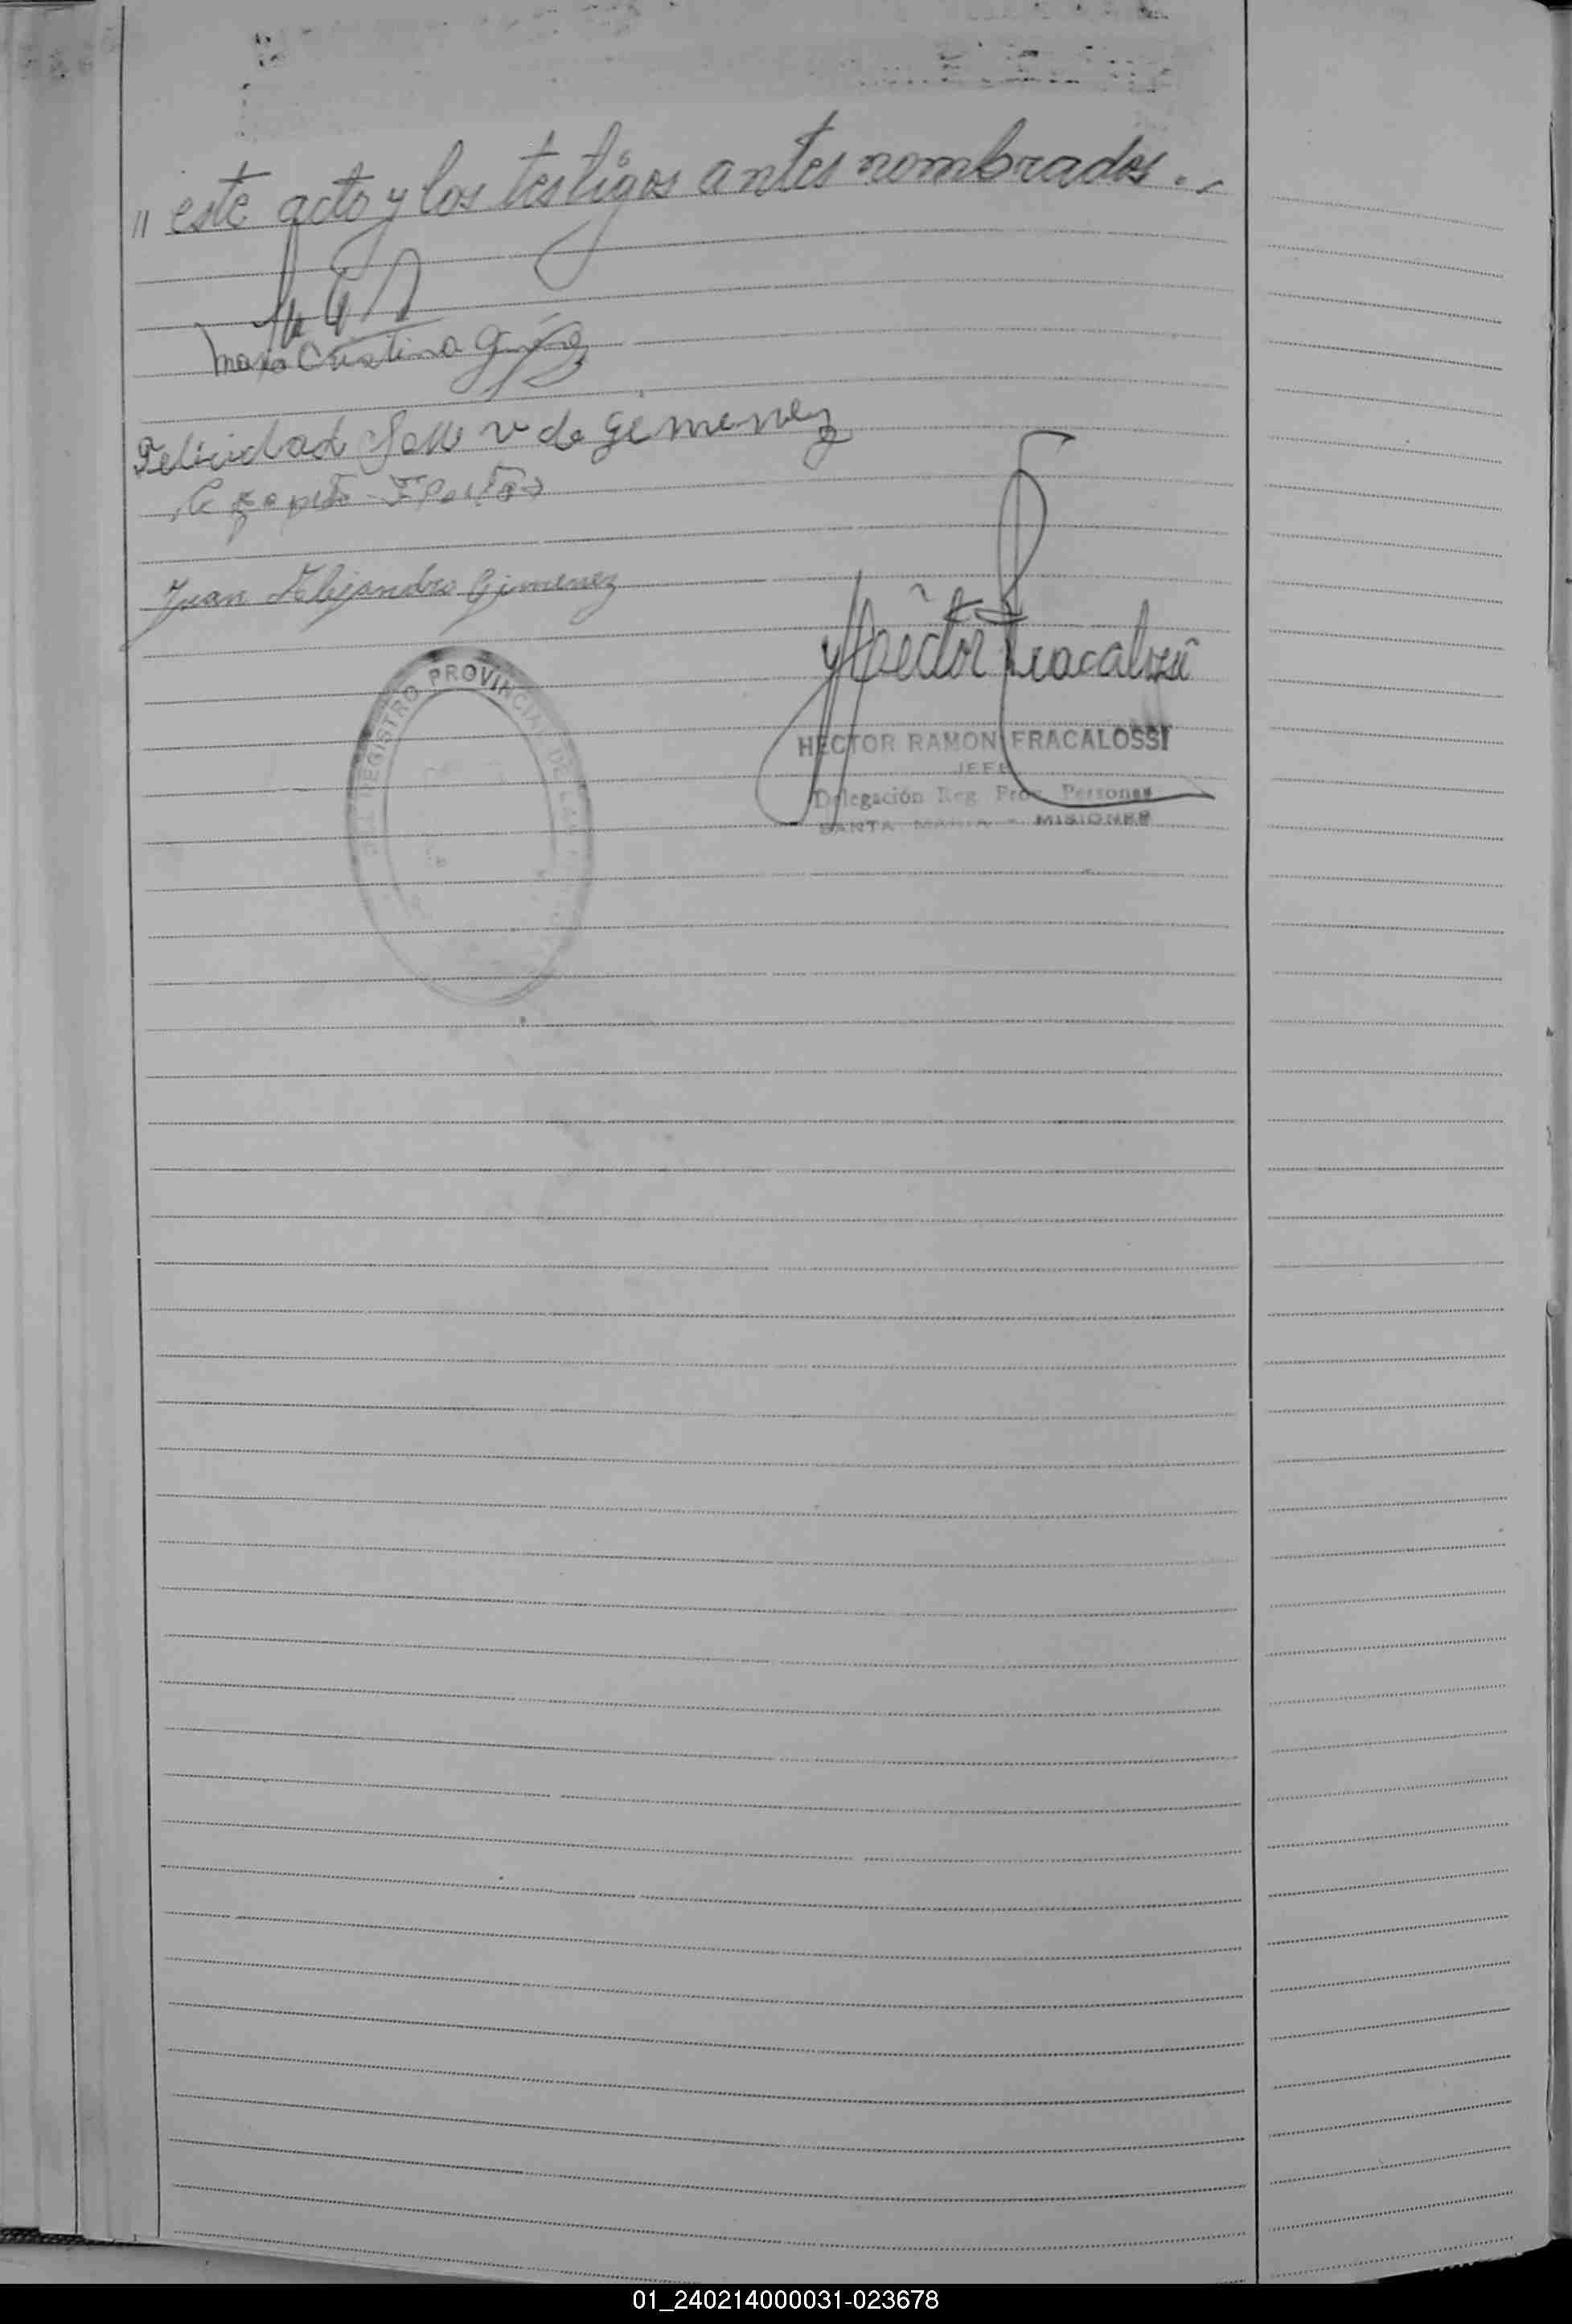 " este acto y los testigos antes nombrados.-
Maria Cristina Giménez
Felicidad v de Gimenez
Juan Alejandro Gimenez
Héctor Fracalossi
REGISTRO PROVINCIAL DE LAS
HECTOR RAMON FRACALOSSI
JEFE
Delegación Reg. Prov. Personas
SANTA MARIA - MISIONES
01_240214000031-023678